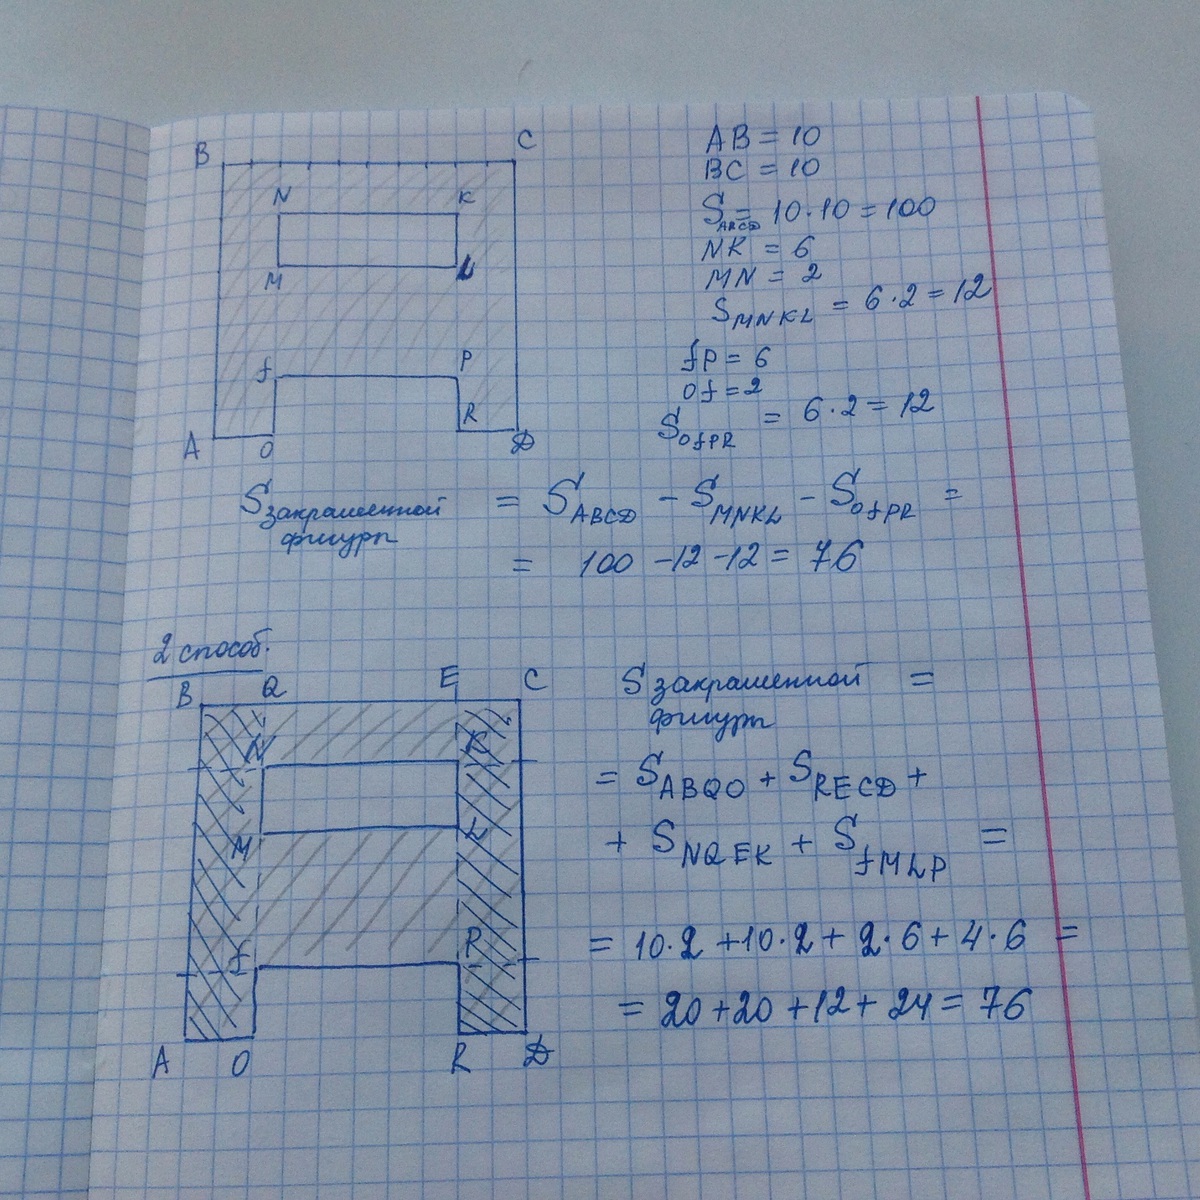 B C
N K
M L
f P
R
A O D
AB = 10
BC = 10
S ABCD = 10·10 = 100
NK = 6
MN = 2
S MNKL = 6·2 = 12
fP = 6
Of = 2
S OfPR = 6·2 = 12
S закрашенной фигуры = S ABCD - S MNKL - S OfPR =
= 100 - 12 - 12 = 76
2 способ.
B Q E C
N K
M L
f P
A O R D
S закрашенной фигуры =
= S ABQO + S RECD +
+ S NQEK + S fMLP =
= 10·2 + 10·2 + 2·6 + 4·6 =
= 20 + 20 + 12 + 24 = 76